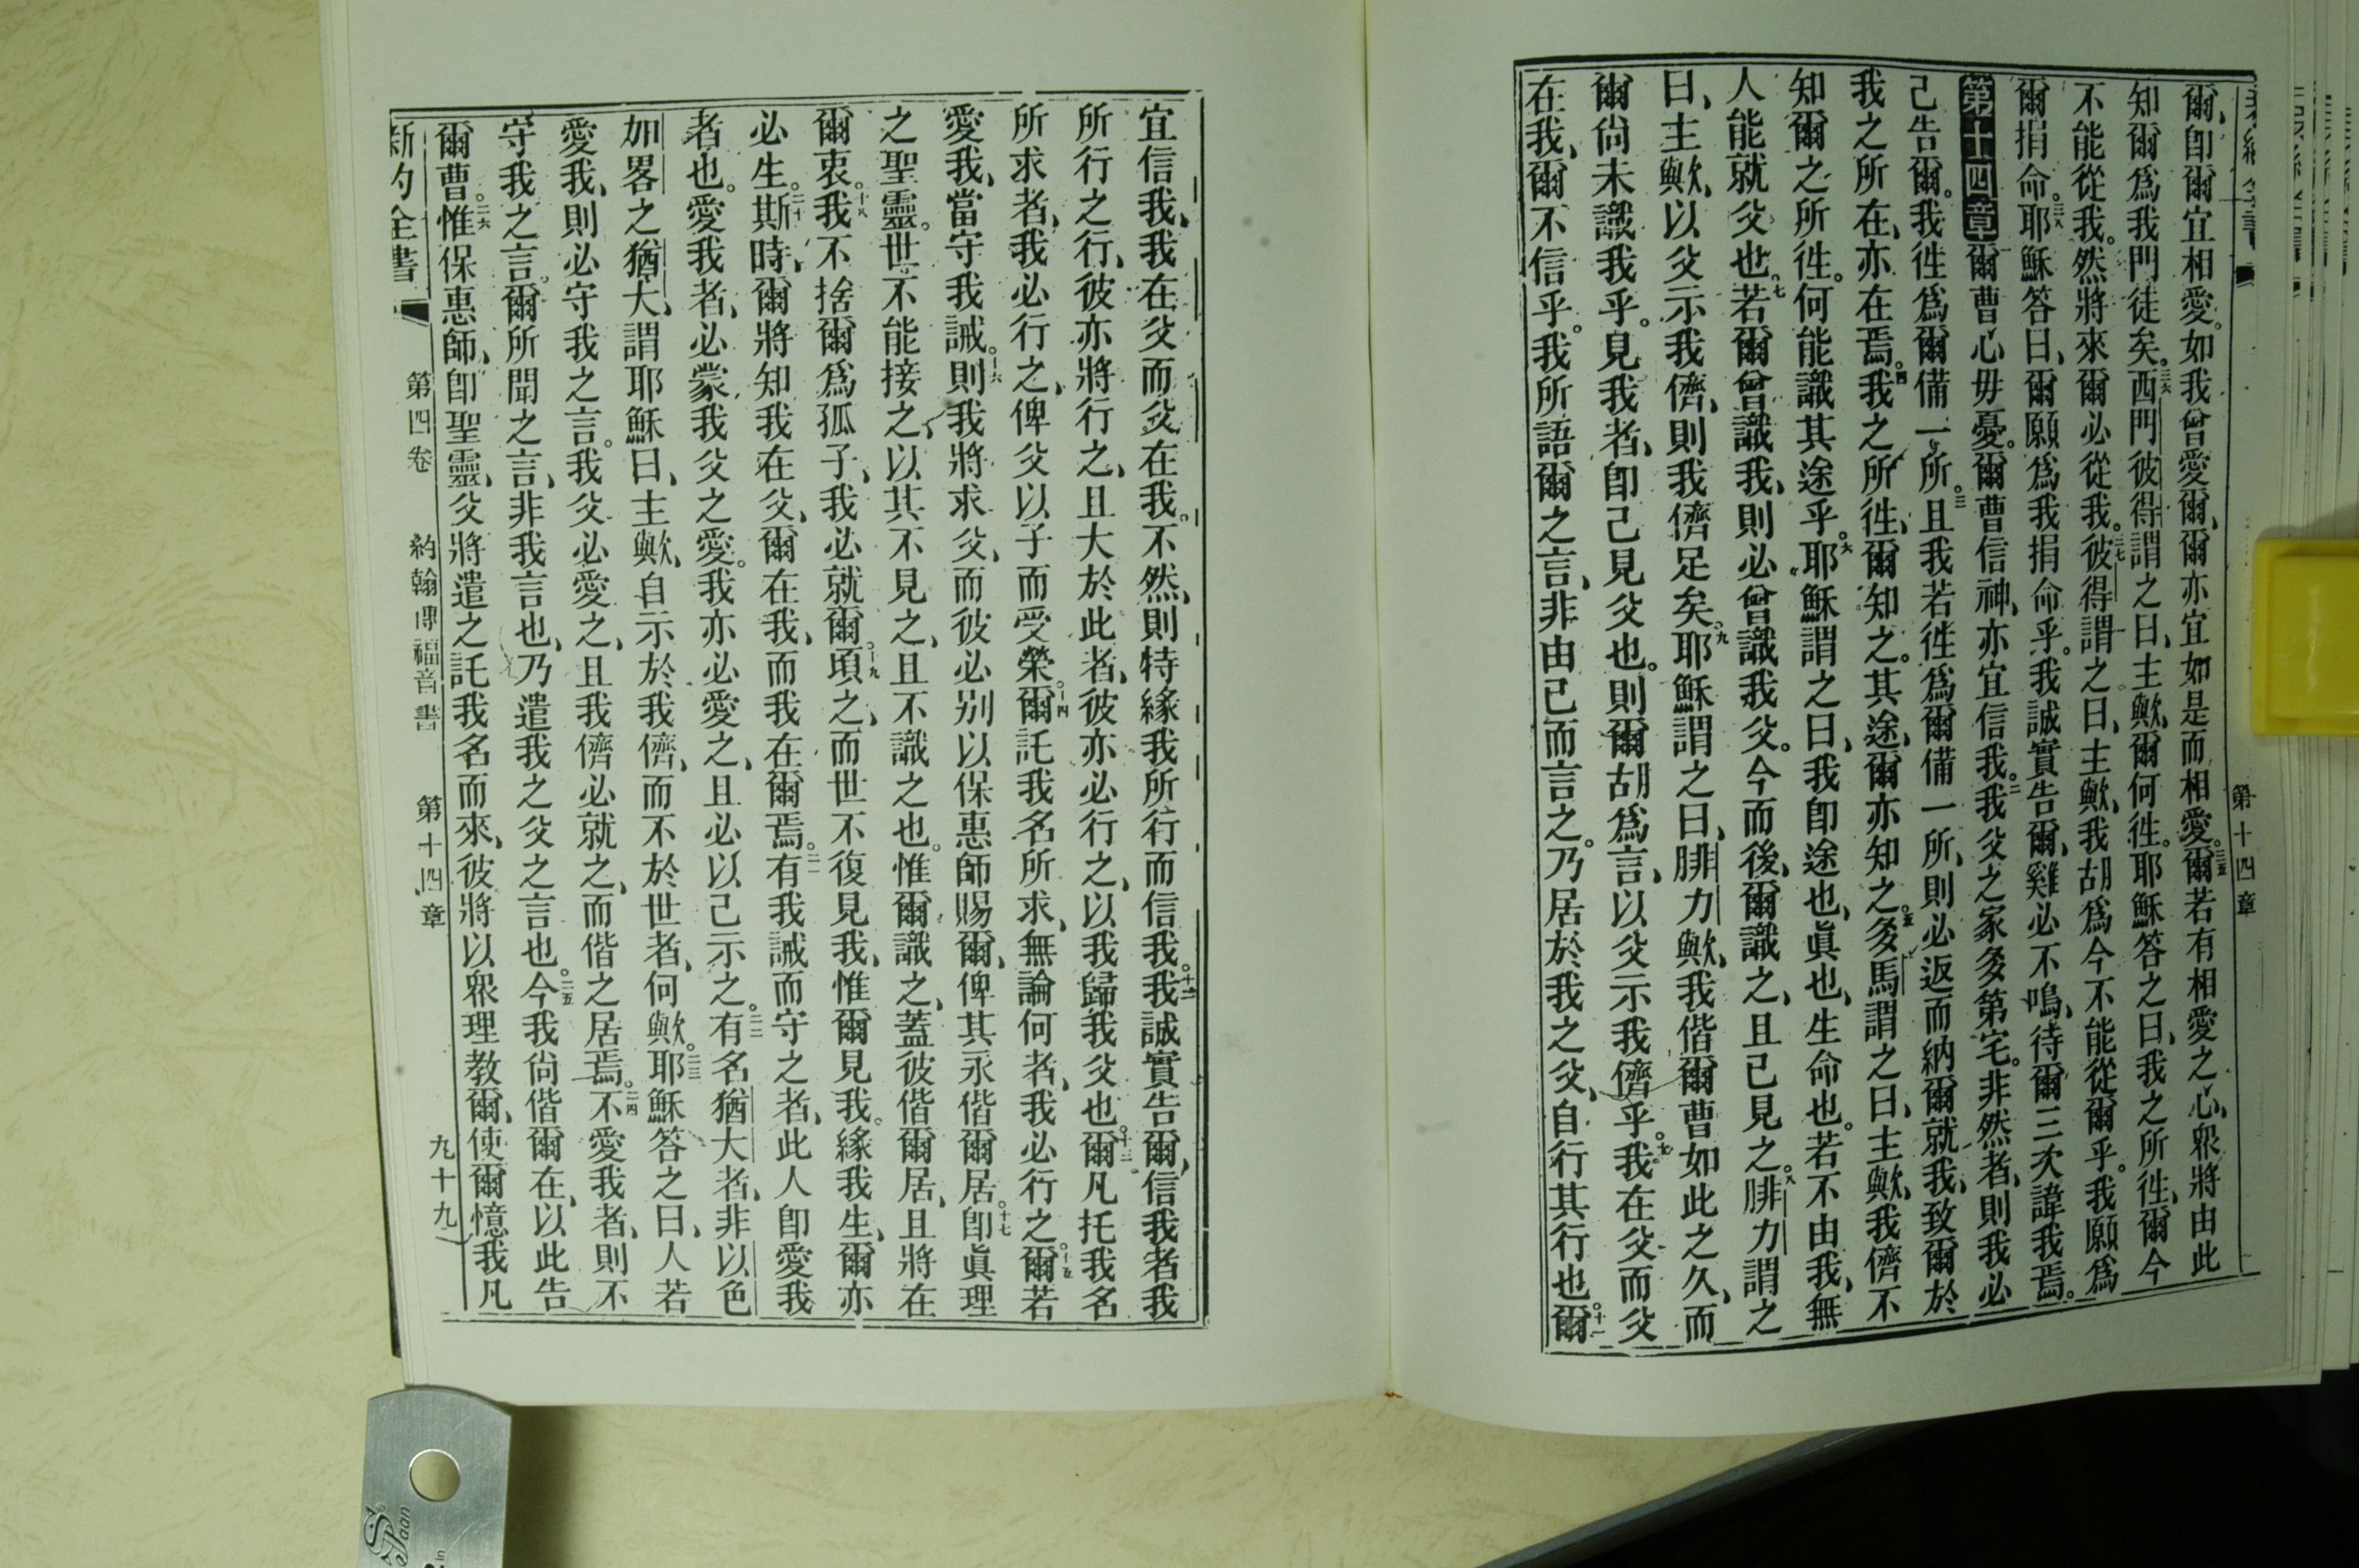 第十四章
爾、卽爾宜相愛。如我曾愛爾、爾亦宜如是而相愛。三五爾若有相愛之心、眾將由此
知爾爲我門徒矣。三六西門彼得謂之曰、主歟、爾何徃。耶穌答之曰、我之所徃、爾今
不能從我。然將來爾必從我。三七彼得謂之曰、主歟、我胡爲今不能從爾乎。我願爲
爾捐命。三八耶穌答曰、爾願爲我捐命乎。我誠實告爾、雞必不鳴、待爾三次諱我焉。
第十四章爾曹心毋憂。爾曹信神、亦宜信我。二我父之家多第宅。非然者、則我必
己告爾。我徃爲爾備一所。三且我若徃爲爾備一所、則必返而納爾就我、致爾於
我之所在、亦在焉。四我之所徃、爾知之。其途、爾亦知之。五多馬謂之曰、主歟、我儕不
知爾之所徃。何能識其途乎。六耶穌謂之曰、我卽途也、眞也、生命也。若不由我、無
人能就父也。七若爾曾識我、則必曾識我父。今而後、爾識之、且己見之。八腓力謂之
曰、主歟、以父示我儕、則我儕足矣。九耶穌謂之曰、腓力歟、我偕爾曹如此之久、而
爾尚未識我乎。見我者、卽己見父也。則爾胡爲言、以父示我儕乎。十我在父而父
在我、爾不信乎。我所語爾之言、非由己而言之。乃居於我之父、自行其行也。十一爾
宜信我、我在父而父在我。不然、則特緣我所行而信我。十二我誠實告爾、信我者、我
所行之行、彼亦將行之、且大於此者、彼亦必行之、以我歸我父也。十三爾凡托我名
所求者、我必行之、俾父以子而受榮。十四爾託我名所求、無論何者、我必行之。十五爾若
愛我、當守我誡。十六則我將求父、而彼必别以保惠師賜爾、俾其永偕爾居。十七卽眞理
之聖靈。世不能接之、以其不見之、且不識之也。惟爾識之、蓋彼偕爾居、且將在
爾衷。十八我不捨爾爲孤子、我必就爾。十九頃之、而世不復見我、惟爾見我。緣我生、爾亦
必生。二十斯時、爾將知我在父、爾在我、而我在爾焉。二一有我誡而守之者、此人卽愛我
者也。愛我者、必蒙我父之愛。我亦必愛之、且必以己示之。二二有名猶大者、非以色
加畧之猶大、謂耶穌曰、主歟、自示於我儕、而不於世者、何歟。二三耶穌答之曰、人若
愛我、則必守我之言。我父必愛之、且我儕必就之、而偕之居焉。二四不愛我者、則不
守我之言。爾所聞之言、非我言也、乃遣我之父之言也。二五今我尚偕爾在、以此告
爾曹。二六惟保惠師、卽聖靈、父將遣之託我名而來、彼將以眾理教爾、使爾憶我凡
新約全書 第四卷 約翰傳福音書 第十四章 九十九